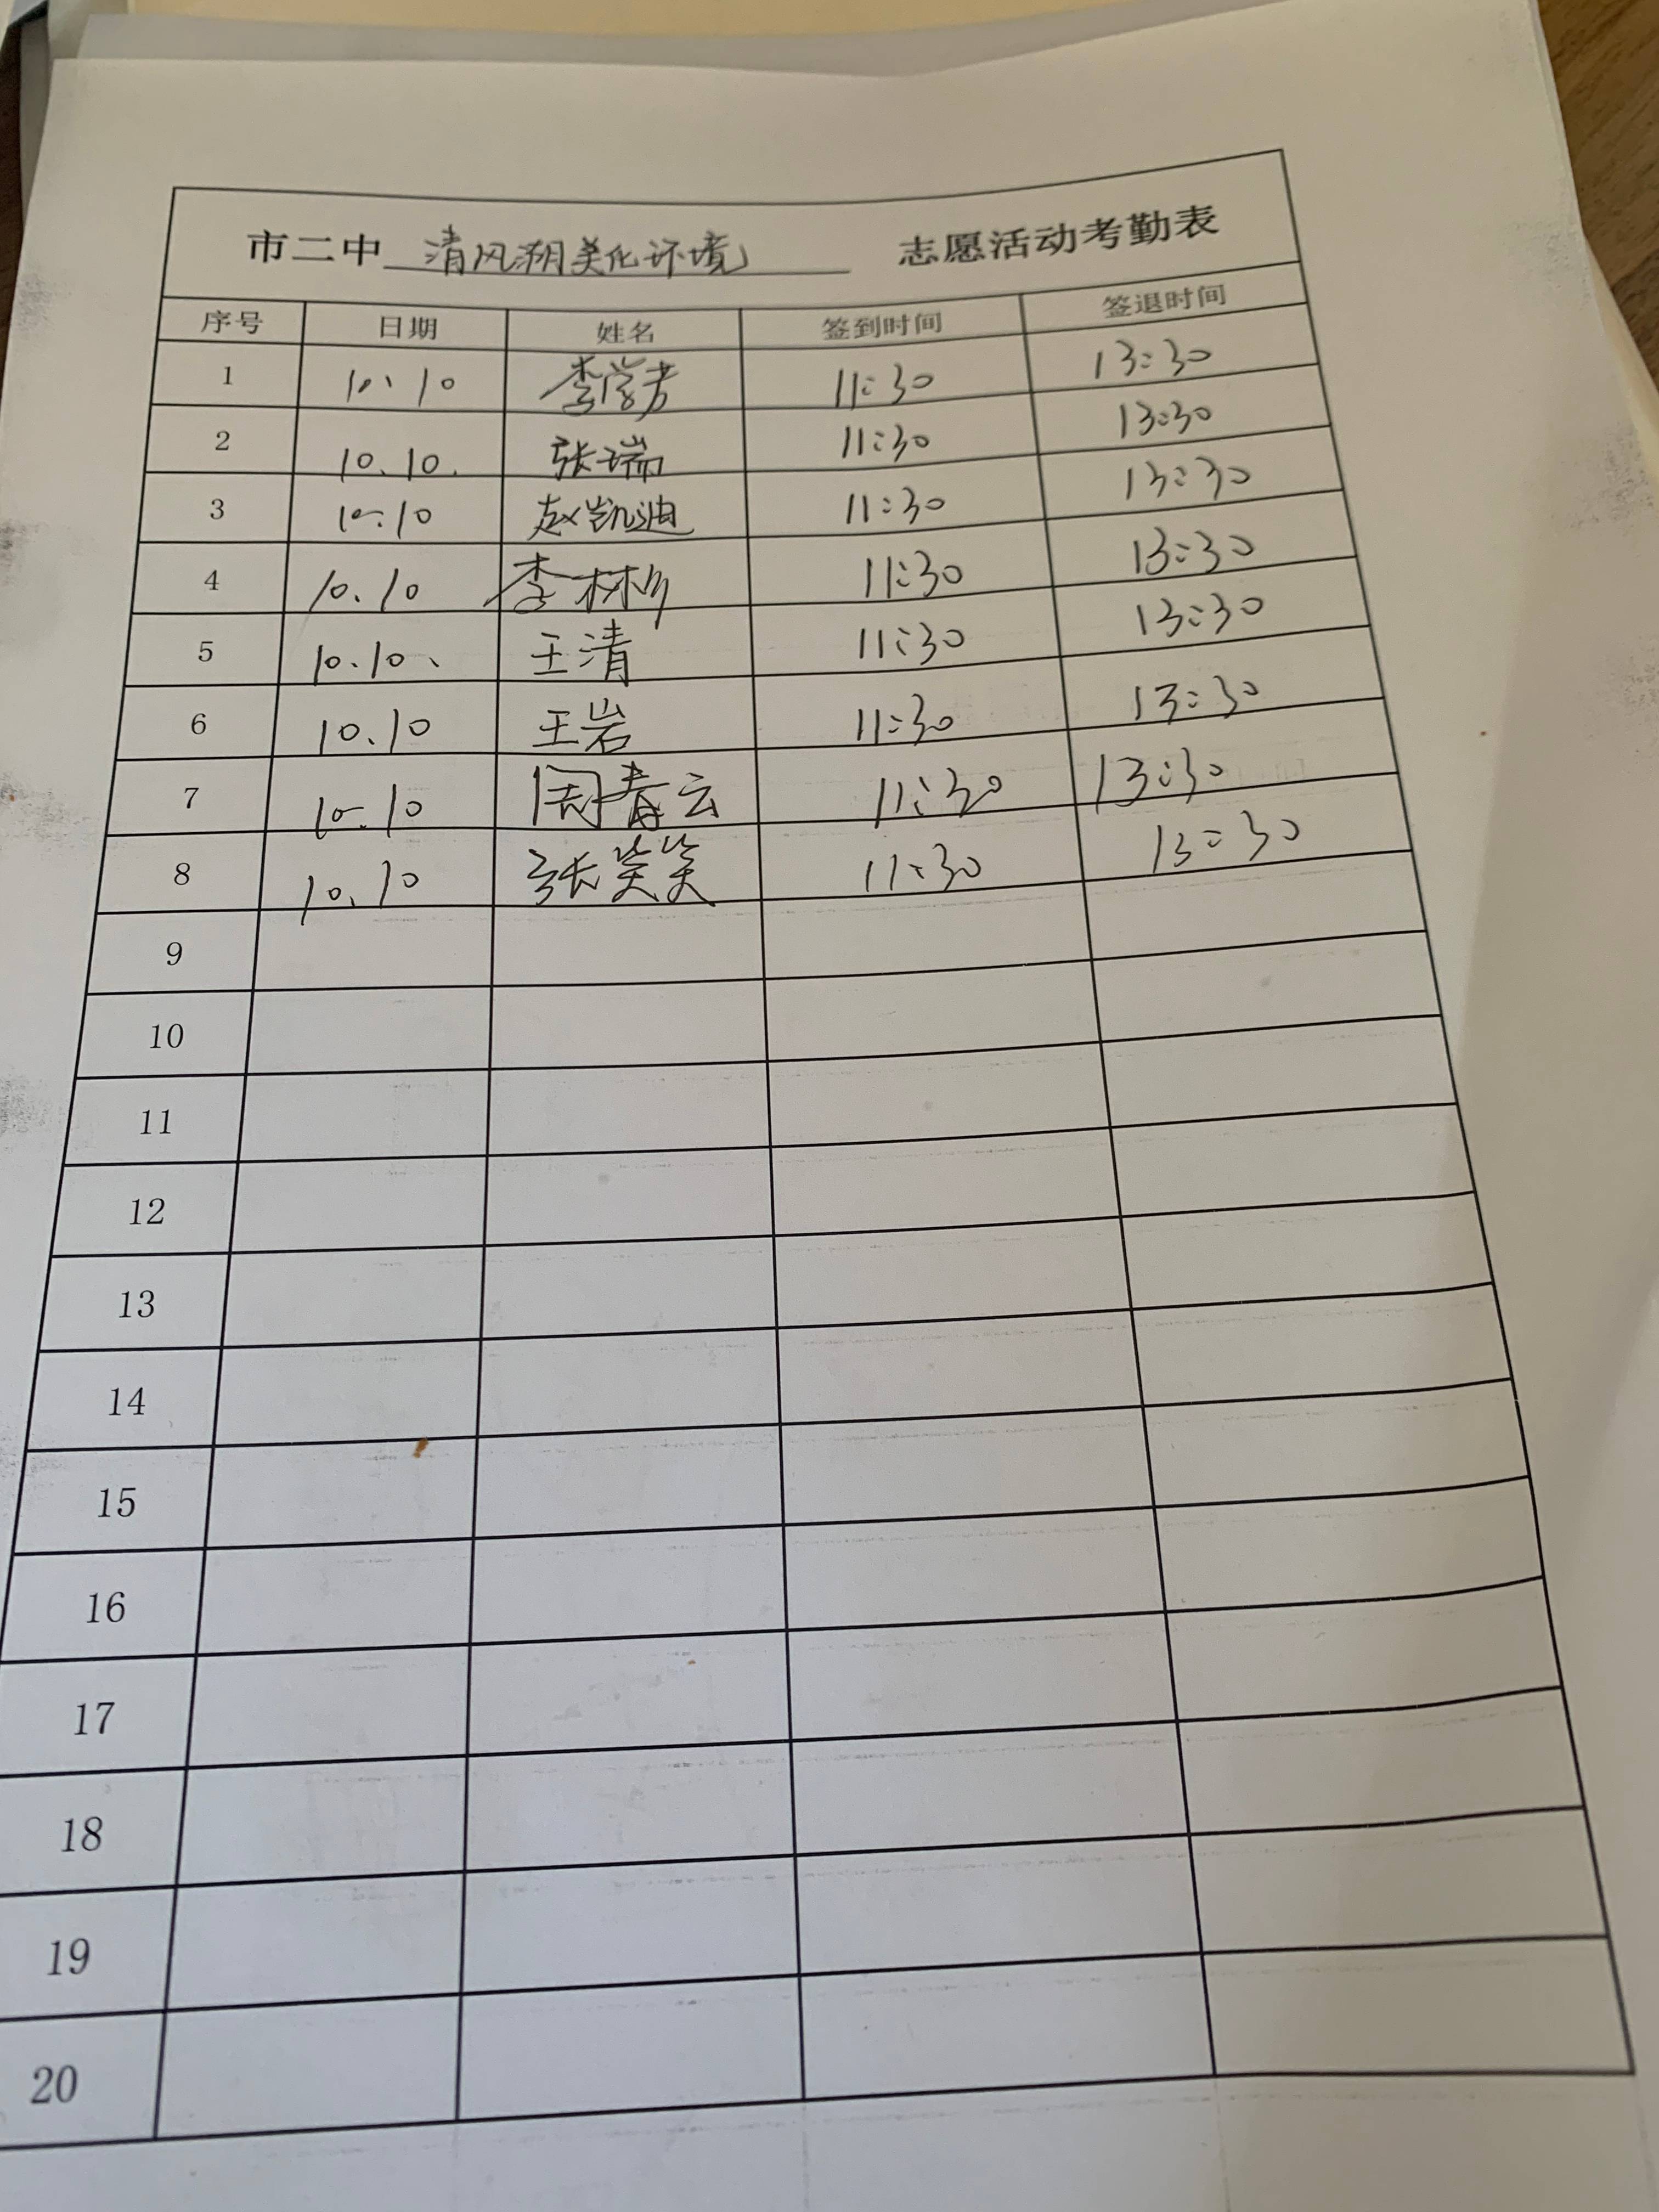 市二中 清风湖美化环境 志愿活动考勤表
序号 日期 姓名 签到时间 签退时间
1 10、10 李学芳 11:30 13:30
2 10.10. 张瑞 11:30 13:30
3 10.10 赵凯迪 11:30 13:30
4 10、10 李 11:30 13:30
5 10.10、 王清 11:30 13:30
6 10.10 王岩 11:30 13:30
7 10.10 周春云 11:30 13:30
8 10.10 张笑笑 11:30 13:30
9
10
11
12
13
14
15
16
17
18
19
20